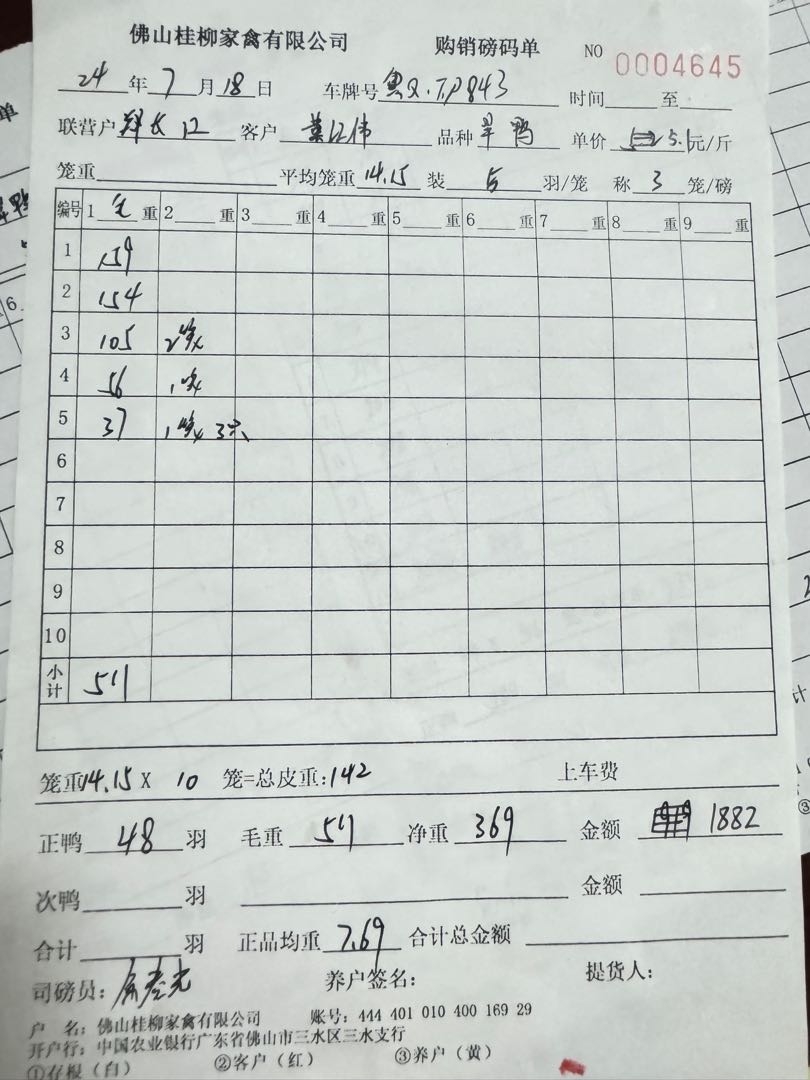 佛山桂柳家禽有限公司 购销磅码单 NO 0004645
24 年 7 月 18 日 车牌号 粤Q·TP843 时间 至
联营户 客户 莫江伟 品种 旱鸭 单价 5.1 元/斤
笼重 平均笼重 14.15 装 5 羽/笼 称 3 笼/磅
编号 1 毛 重 2 重 3 重 4 重 5 重 6 重 7 重 8 重 9 重
1 159
2 154
3 105 2笼
4 56 1笼
5 37 1笼 3只
6
7
8
9
10
小计 511
笼重 14.15 X 10 笼=总皮重: 142 上车费
正鸭 48 羽 毛重 511 净重 369 金额 1882
次鸭 羽 金额
合计 羽 正品均重 7.69 合计总金额
司磅员: 养户签名: 提货人:
户 名: 佛山桂柳家禽有限公司 账号: 444 401 010 400 169 29
开户行: 中国农业银行广东省佛山市三水区三水支行
①存根(白) ②客户(红) ③养户(黄)